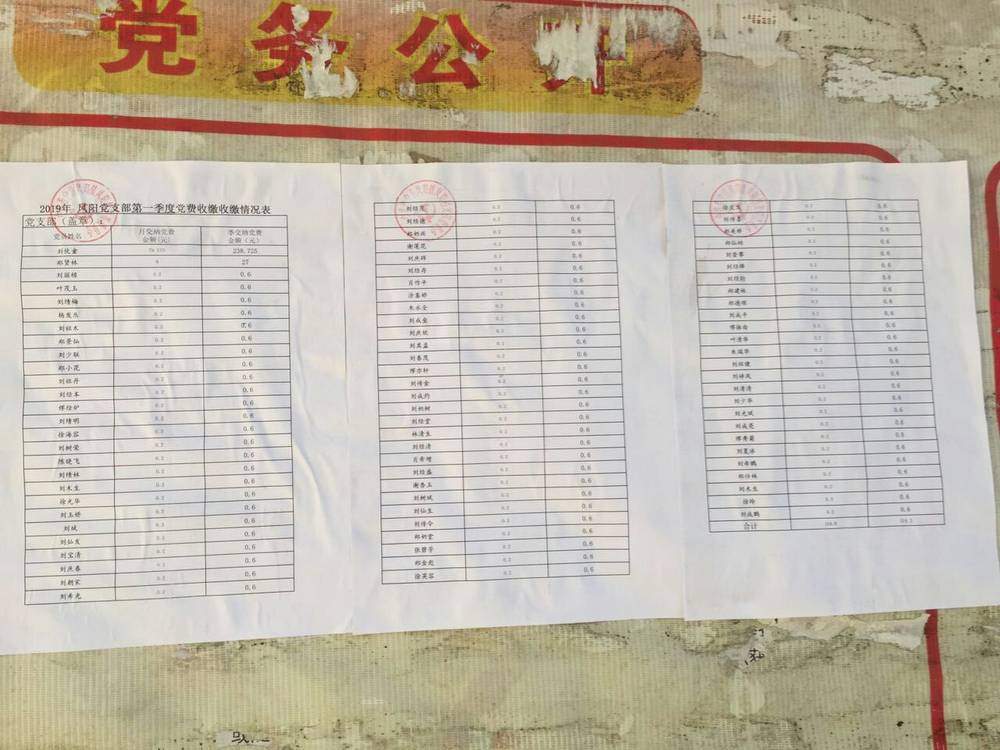 党务公开
2019年 凤阳党支部第一季度党费收缴收缴情况表
党支部（盖章）：
党员姓名 月交纳党费金额（元） 季交纳党费金额（元）
238.725
郑贤林 9 27
刘丽楼 0.2 0.6
叶茂玉 0.2 0.6
刘绪梅 0.2 0.6
杨发乐 0.2 0.6
刘祖木 0.2 0.6
郑景仙 0.2 0.6
刘少联 0.2 0.6
郑小花 0.2 0.6
刘祖丹 0.2 0.6
刘经本 0.2 0.6
0.2 0.6
刘绪明 0.2 0.6
徐海容 0.2 0.6
刘树荣 0.2 0.6
陈晓飞 0.2 0.6
刘绪林 0.2 0.6
刘木生 0.2 0.6
徐光华 0.2 0.6
刘玉娇 0.2 0.6
刘斌 0.2 0.6
刘仙发 0.2 0.6
刘宝清 0.2 0.6
刘庆春 0.2 0.6
刘朝家 0.2 0.6
刘希光 0.2 0.6
刘经茂 0.2 0.6
刘经德 0.2 0.6
郑炳兴 0.2 0.6
谢莲花 0.2 0.6
刘庆辉 0.2 0.6
刘经存 0.2 0.6
肖作平 0.2 0.6
涂嘉娇 0.2 0.6
朱水全 0.2 0.6
刘成金 0.2 0.6
刘庆悦 0.2 0.6
刘其益 0.2 0.6
刘春茂 0.2 0.6
0.2 0.6
刘传金 0.2 0.6
刘成灼 0.2 0.6
刘炳树 0.2 0.6
刘经堂 0.2 0.6
林清生 0.2 0.6
刘经清 0.2 0.6
肖希增 0.2 0.6
刘经盛 0.2 0.6
谢春玉 0.2 0.6
刘树斌 0.2 0.6
刘仙生 0.2 0.6
刘传令 0.2 0.6
郑炳堂 0.2 0.6
张碧芳 0.2 0.6
郑金彪 0.2 0.6
徐英容 0.2 0.6
0.2 0.6
0.2 0.6
郑美娇 0.2 0.6
郑仙旺 0.2 0.6
0.2 0.6
刘经梯 0.2 0.6
0.2 0.6
郑建彬 0.2 0.6
郑德顺 0.2 0.6
刘成平 0.2 0.6
0.2 0.6
叶清华 0.2 0.6
朱溢华 0.2 0.6
刘祖健 0.2 0.6
刘婷凤 0.2 0.6
刘清清 0.2 0.6
刘少华 0.2 0.6
刘光斌 0.2 0.6
刘成亮 0.2 0.6
0.2 0.6
刘夏冰 0.2 0.6
刘希鹏 0.2 0.6
郑行林 0.2 0.6
刘木生 0.2 0.6
徐玲 0.2 0.6
刘成鹏 0.2 0.6
合计